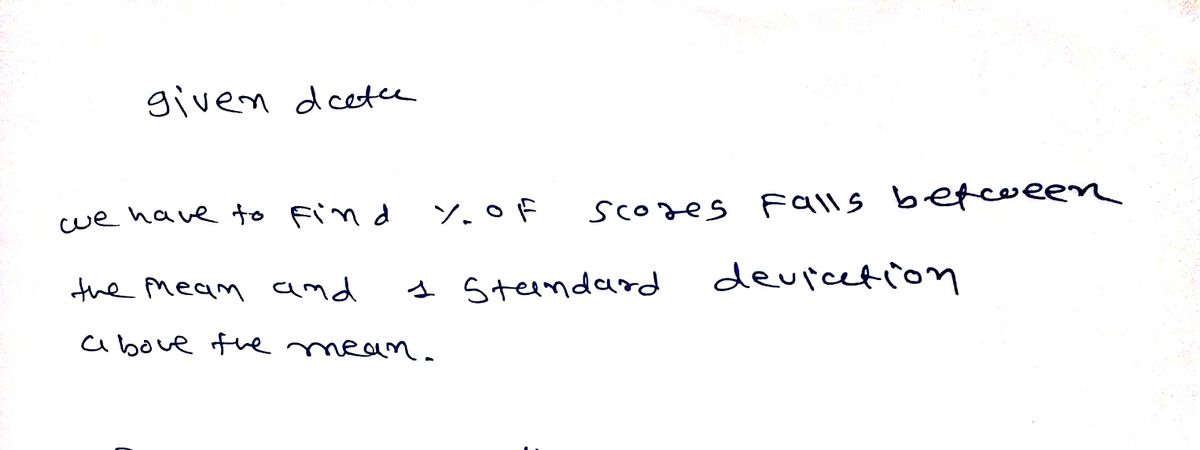 given data
we have to Find %. OF scores Falls between
the mean and 1 Standard deviation
above the mean.